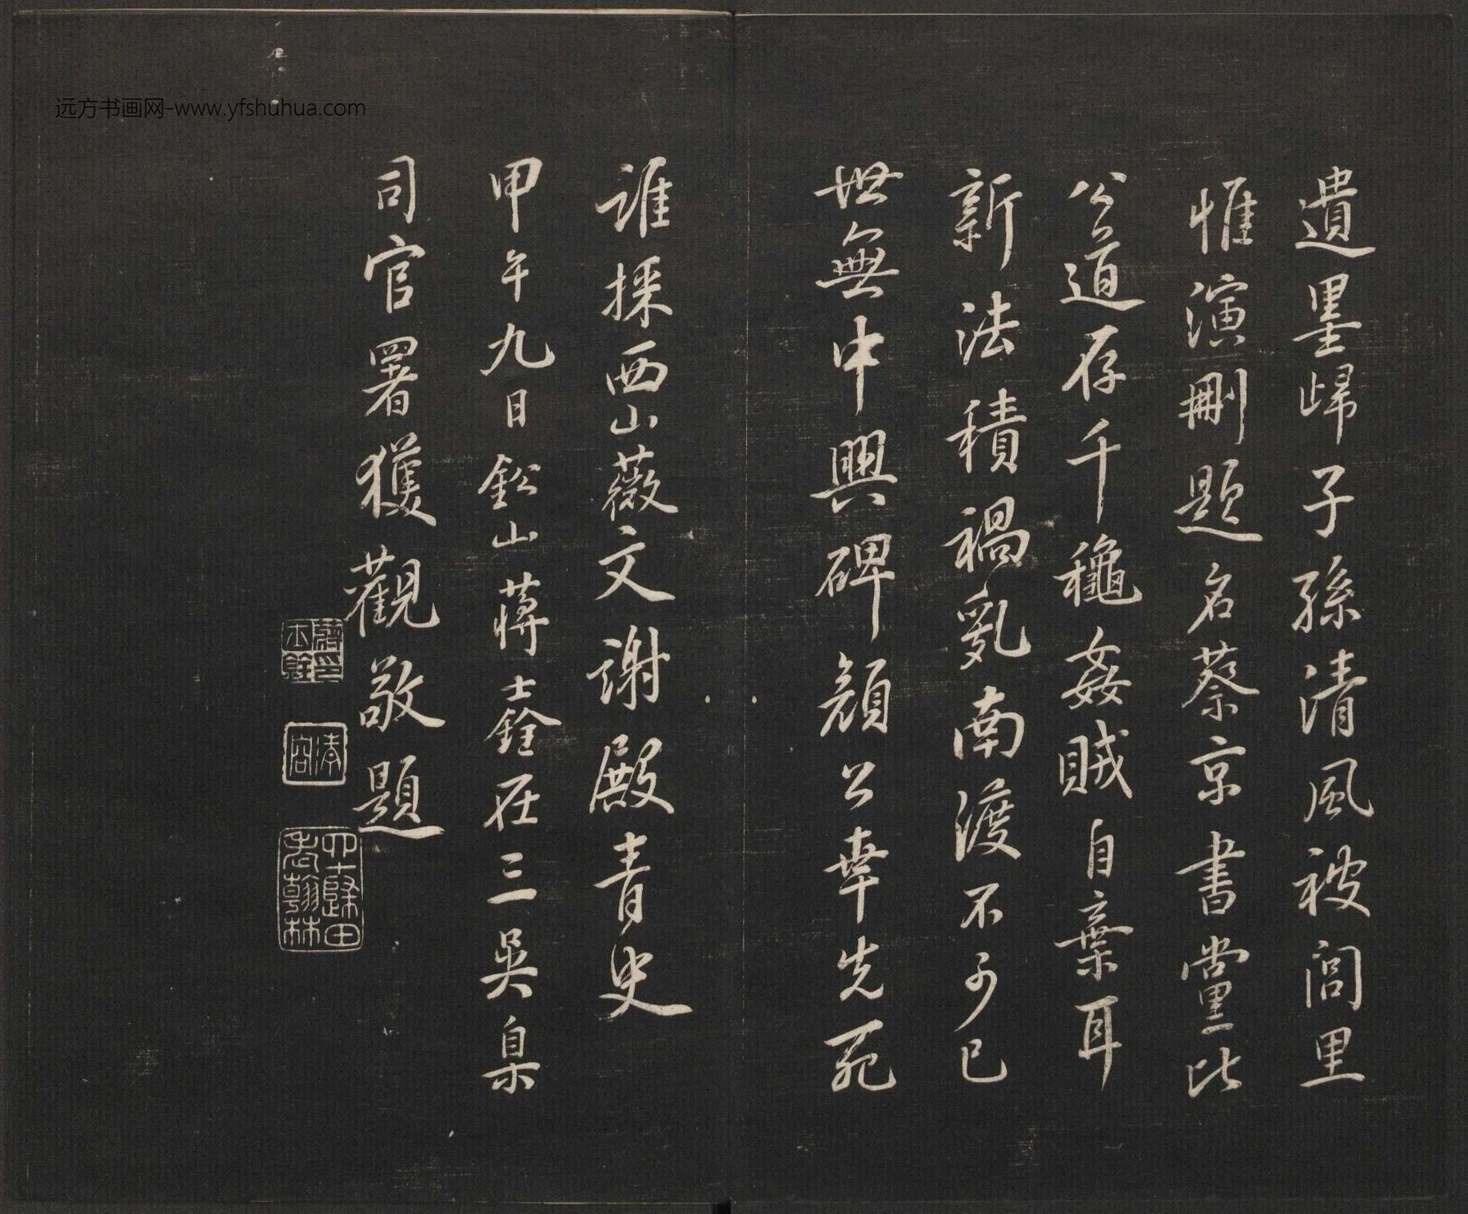 远方书画网-www.yfshuhua.com
遺墨歸子孫清風被閭里
惟演刪題名蔡京書黨比
公道存千穐姦賊自棄耳
新法積禍亂南渡不可已
世無中興碑顏公幸先死
誰採西山薇文謝殿青史
甲午九日鉛山蔣士銓在三吳臬
司官署獲觀敬題
蔣印士銓
清容
四十歸田老翰林